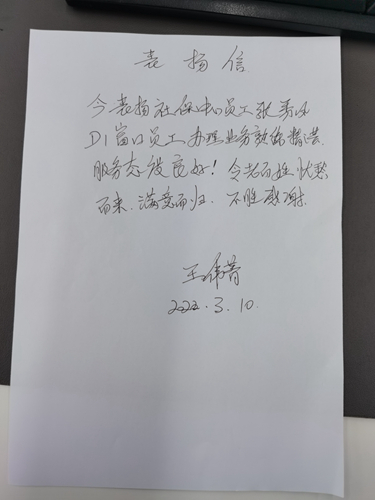 表扬信
今表扬社保中心员工张
D1窗口员工办理业务
服务态度好！令老百姓
而来.满意而归.不胜感谢.
王伟菁
2022.3.10.